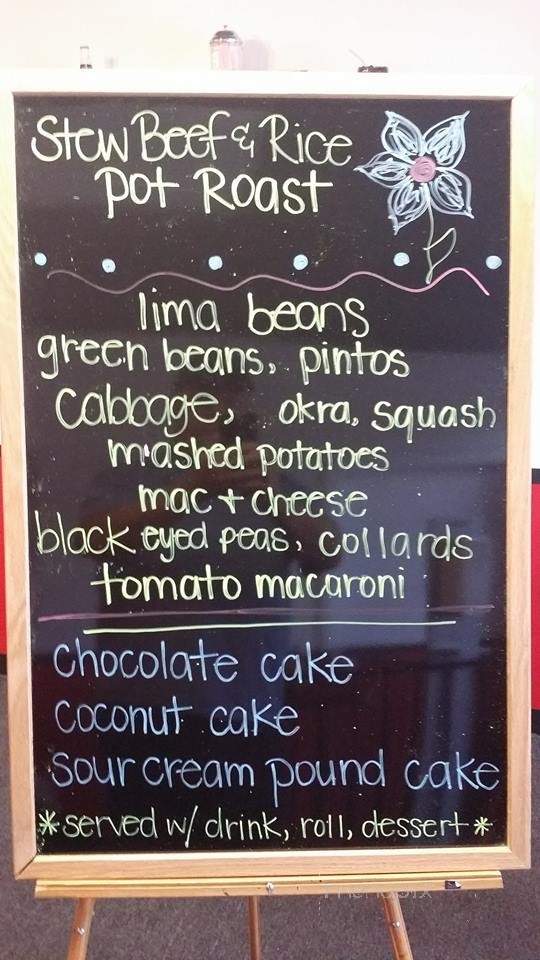 Stew Beef & Rice
Pot Roast
lima beans
green beans, pintos
Cabbage, okra, squash
mashed potatoes
mac + cheese
black eyed peas, collards
tomato macaroni
chocolate cake
coconut cake
sour cream pound cake
*served w/ drink, roll, dessert*